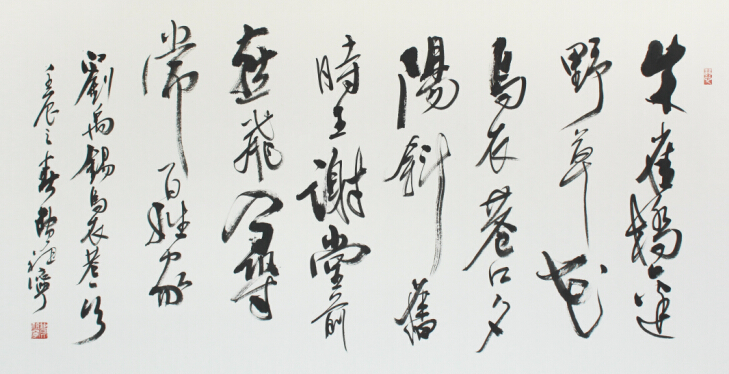 朱雀橋邊
野草花
烏衣巷口夕
陽斜舊
時王謝堂前
燕飛入尋
常百姓家
劉禹錫烏衣巷一首
壬辰之春